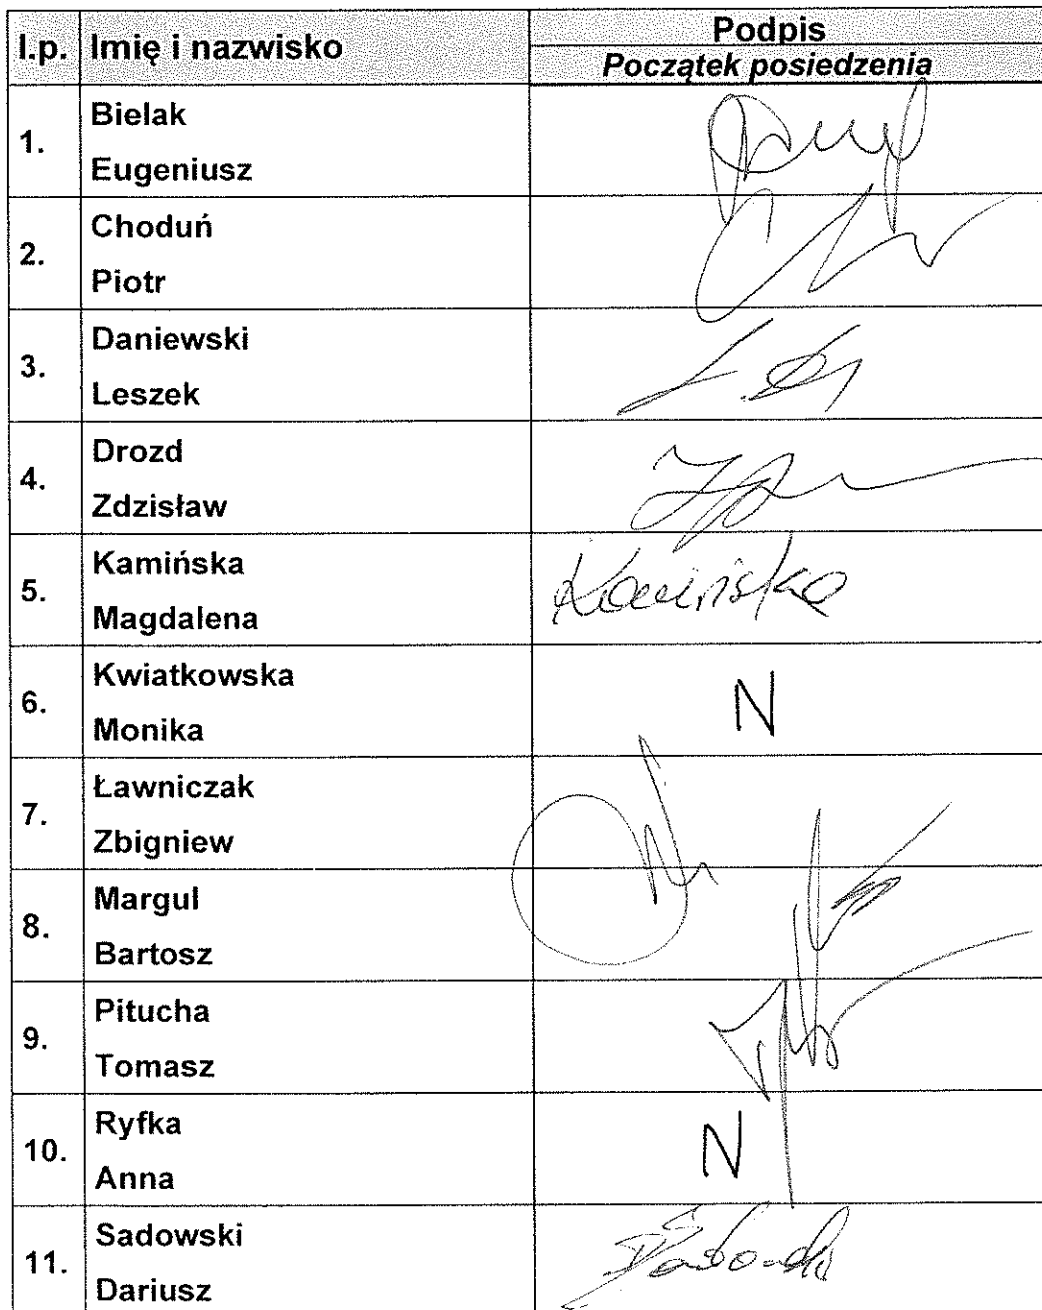 l.p. Imię i nazwisko Podpis
Początek posiedzenia
1. Bielak
Eugeniusz
2. Choduń
Piotr
3. Daniewski
Leszek
4. Drozd
Zdzisław
5. Kamińska Kamińska
Magdalena
6. Kwiatkowska N
Monika
7. Ławniczak
Zbigniew
8. Margul
Bartosz
9. Pitucha
Tomasz
10. Ryfka N
Anna
11. Sadowski
Dariusz